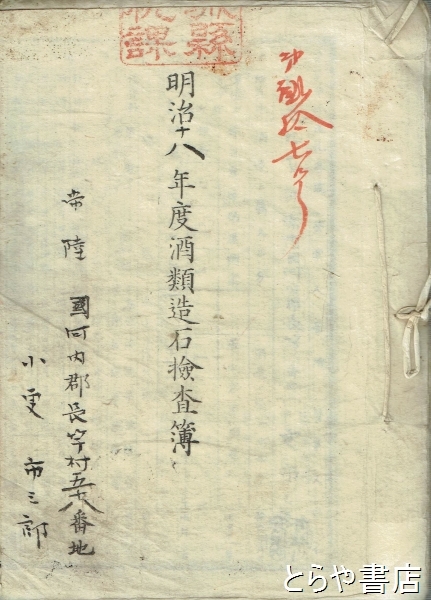 第貳拾七号
縣
課
明治十八年度酒類造石檢査簿
常陸國河内郡長竿村五十八番地
小更市三郎
とらや書店